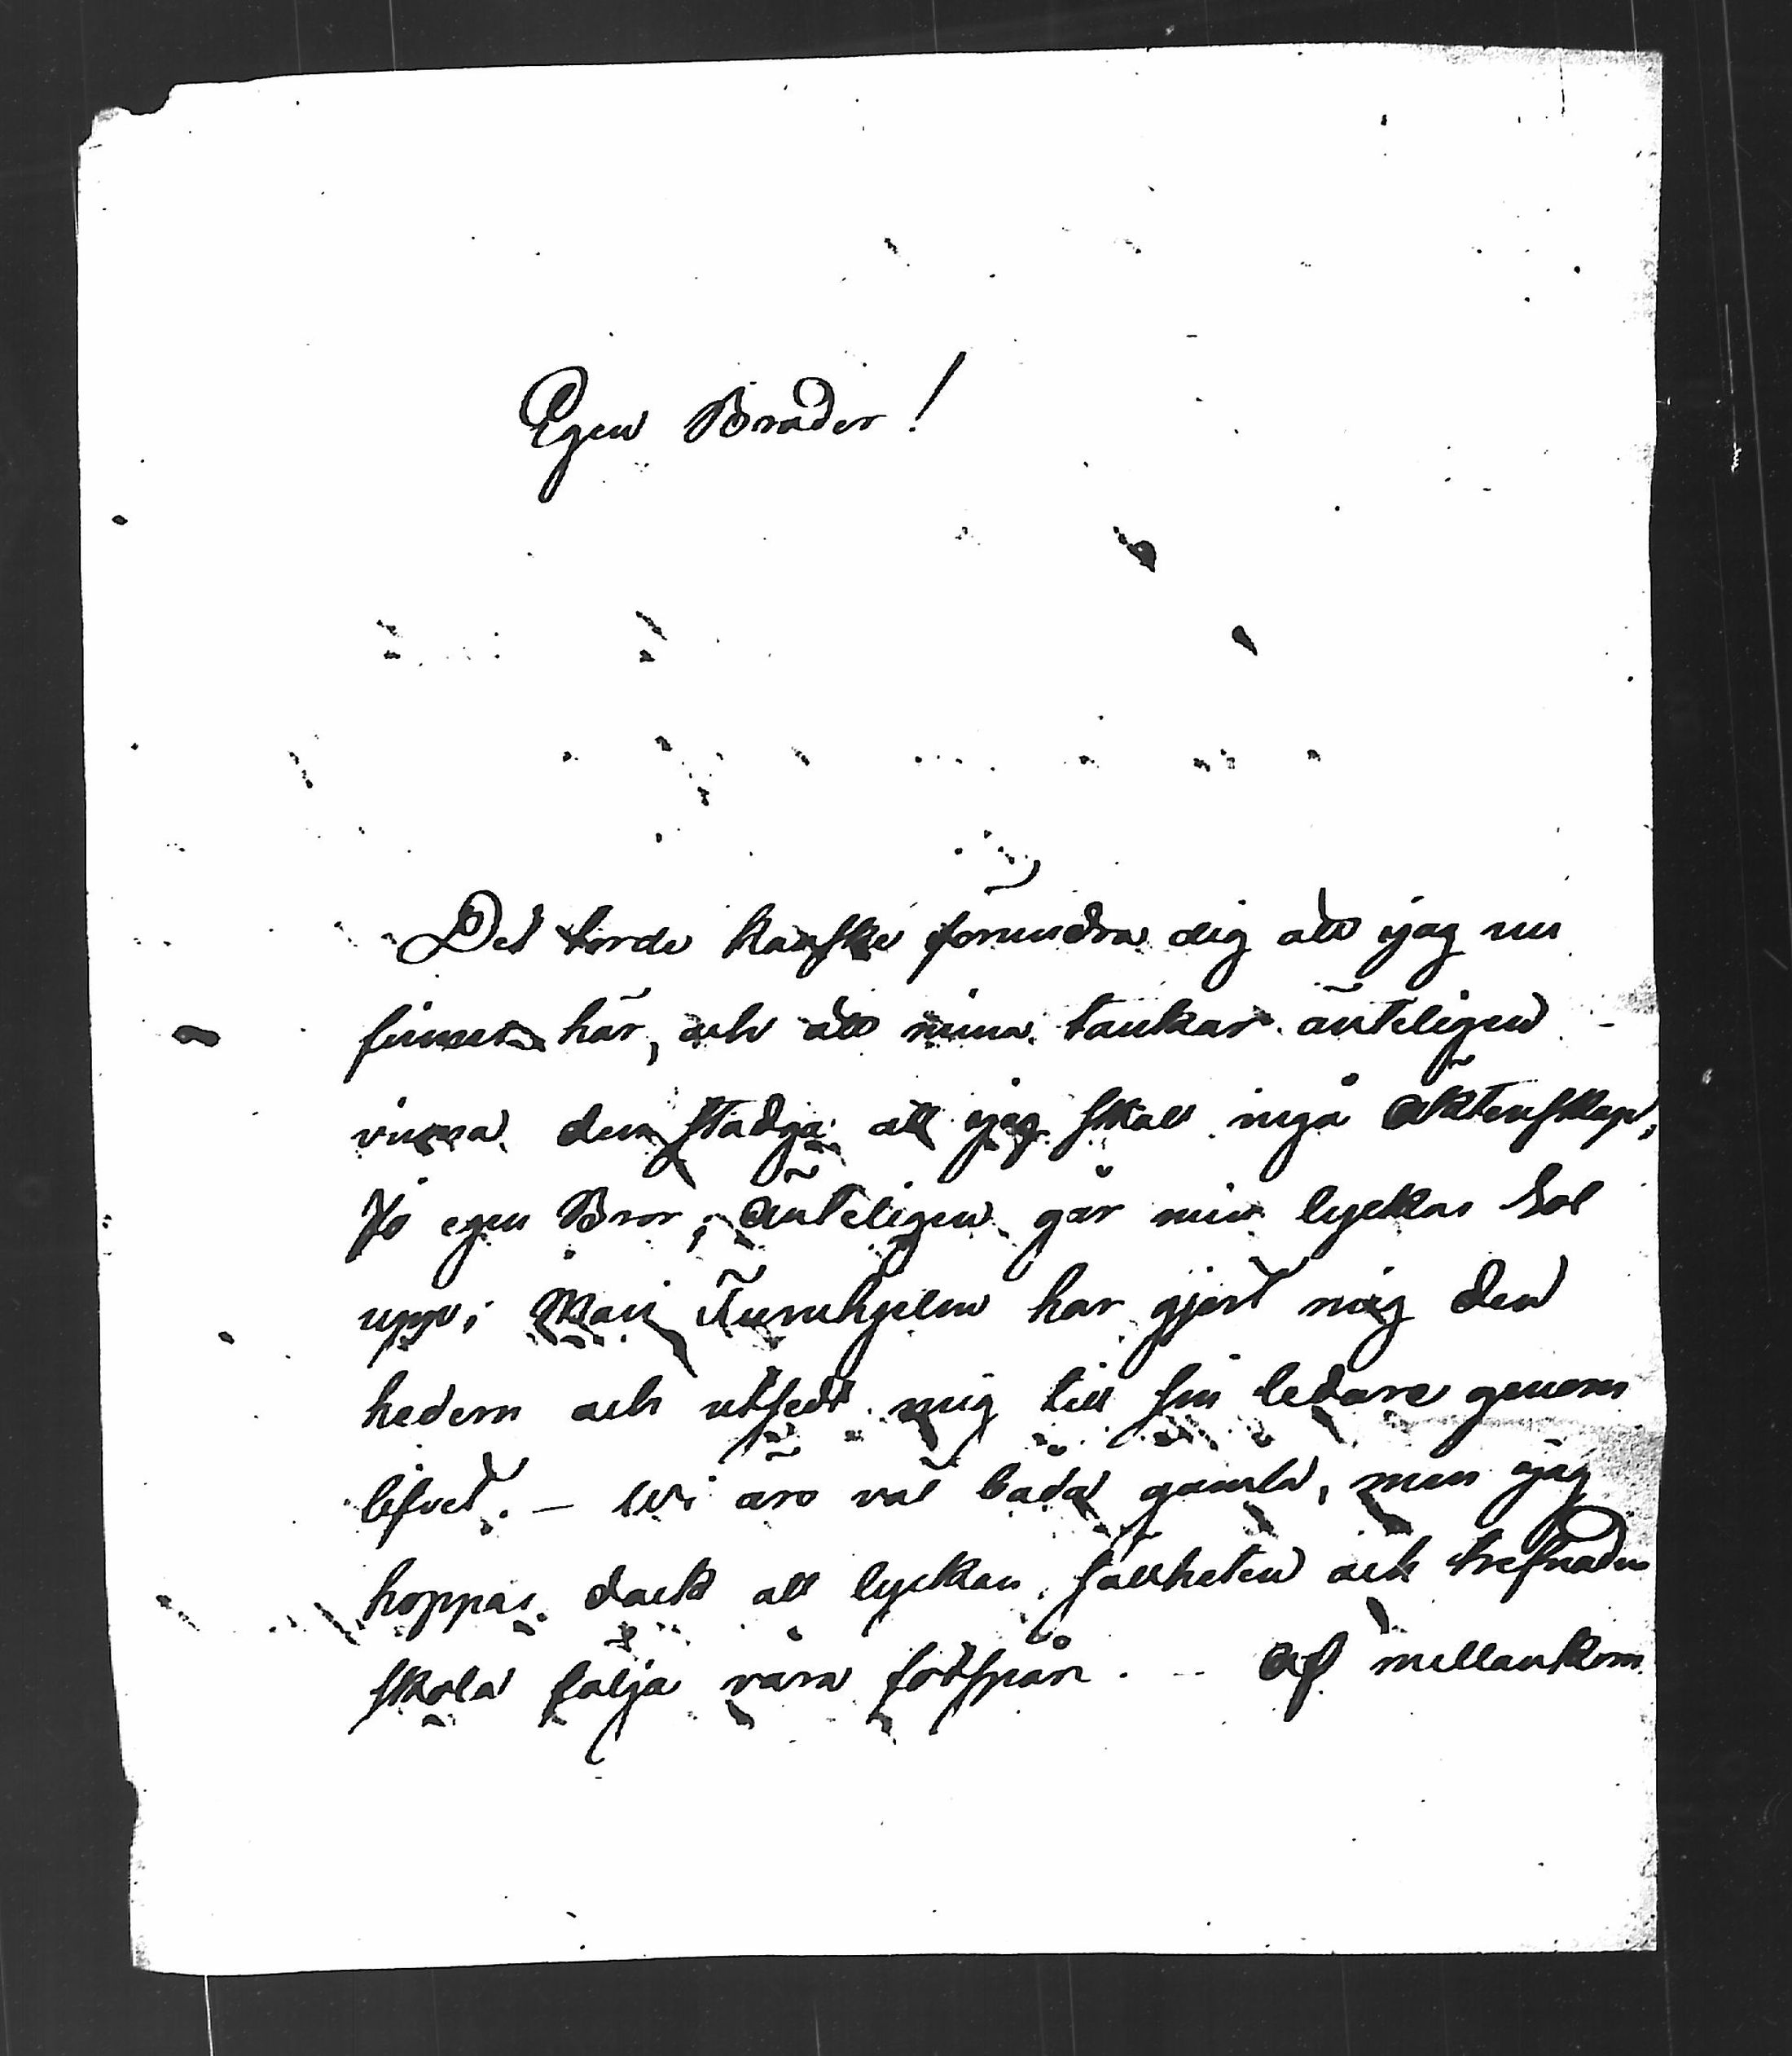 Egen Broder!
Det torde kanske förundra dig att jag nu
finnes här, och att mina tankar änteligen
vinna den stadga att jag skall ingå äktenskap,
Jo egen Bror, änteligen går min lyckas Sol
upp; Mari Furuhjelm har gjort mig den
hedern och utsedt mig till sin ledare genom
lifvet. — Wi äro väl båda gamla, men jag
hoppas dock att lyckan, sällheten och trefnaden
skola följa våra fotspår. — Af mellankom